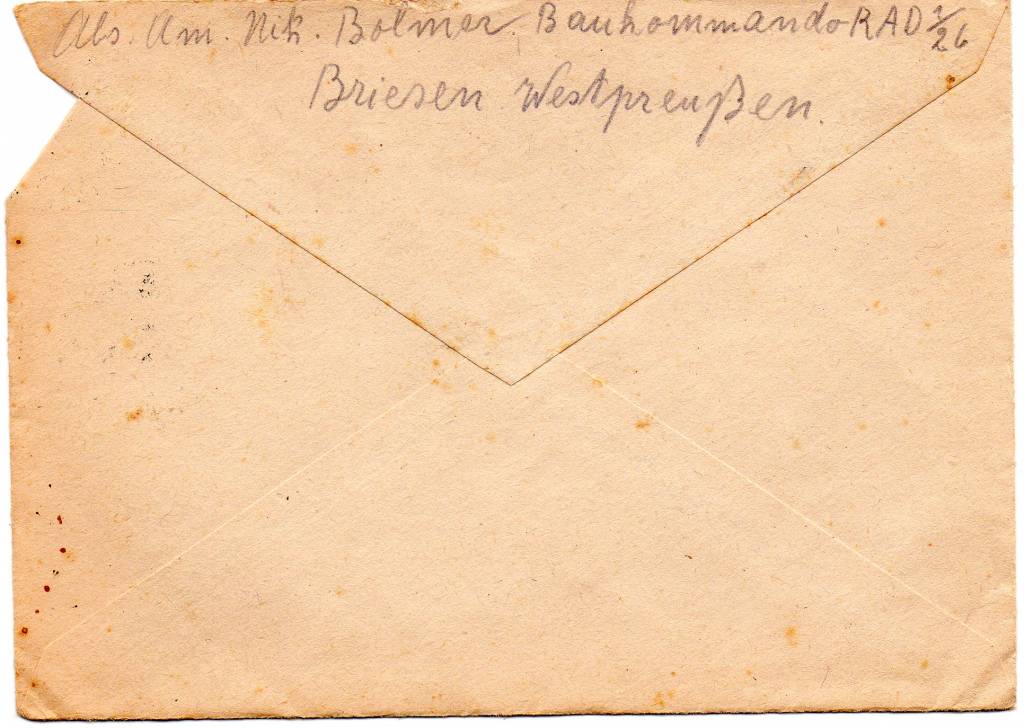 Abs. Am. Nik. Bolmer, Baukommando RAD 1/26
Briesen Westpreußen.